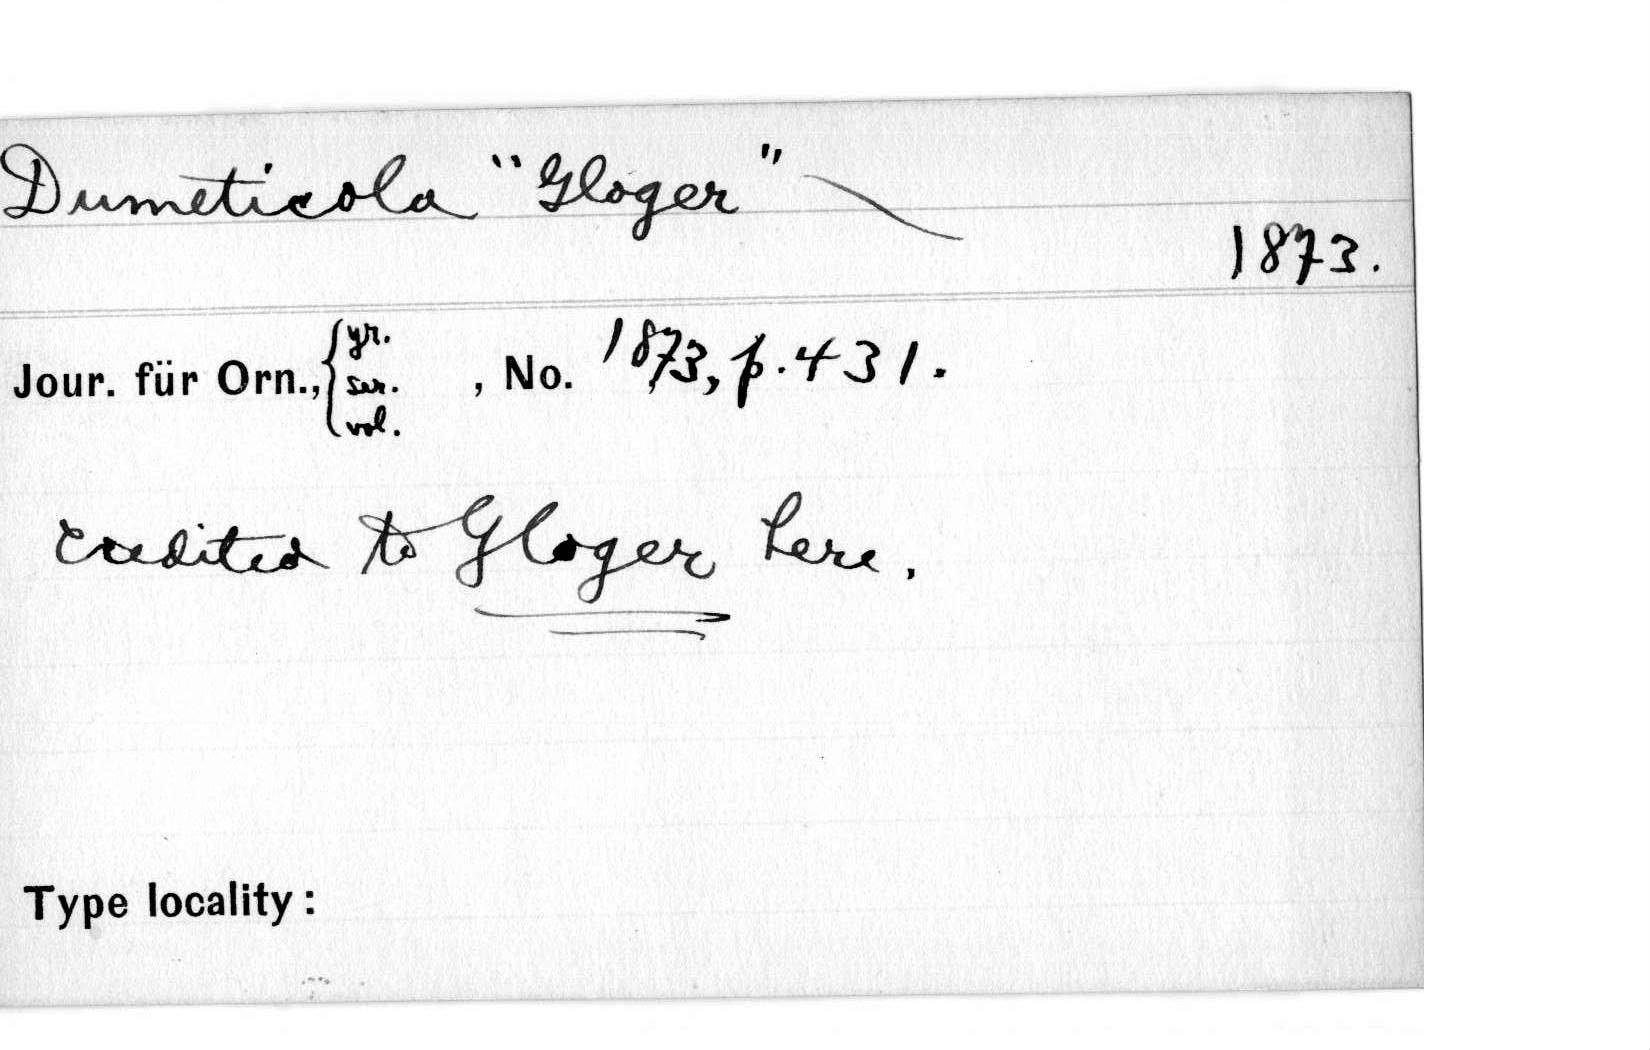 Dumeticola "Gloger"
1873.
Jour. für Orn., { yr. ser. vol. , No. 1873, p. 431.
Credited to Gloger here.
Type locality: